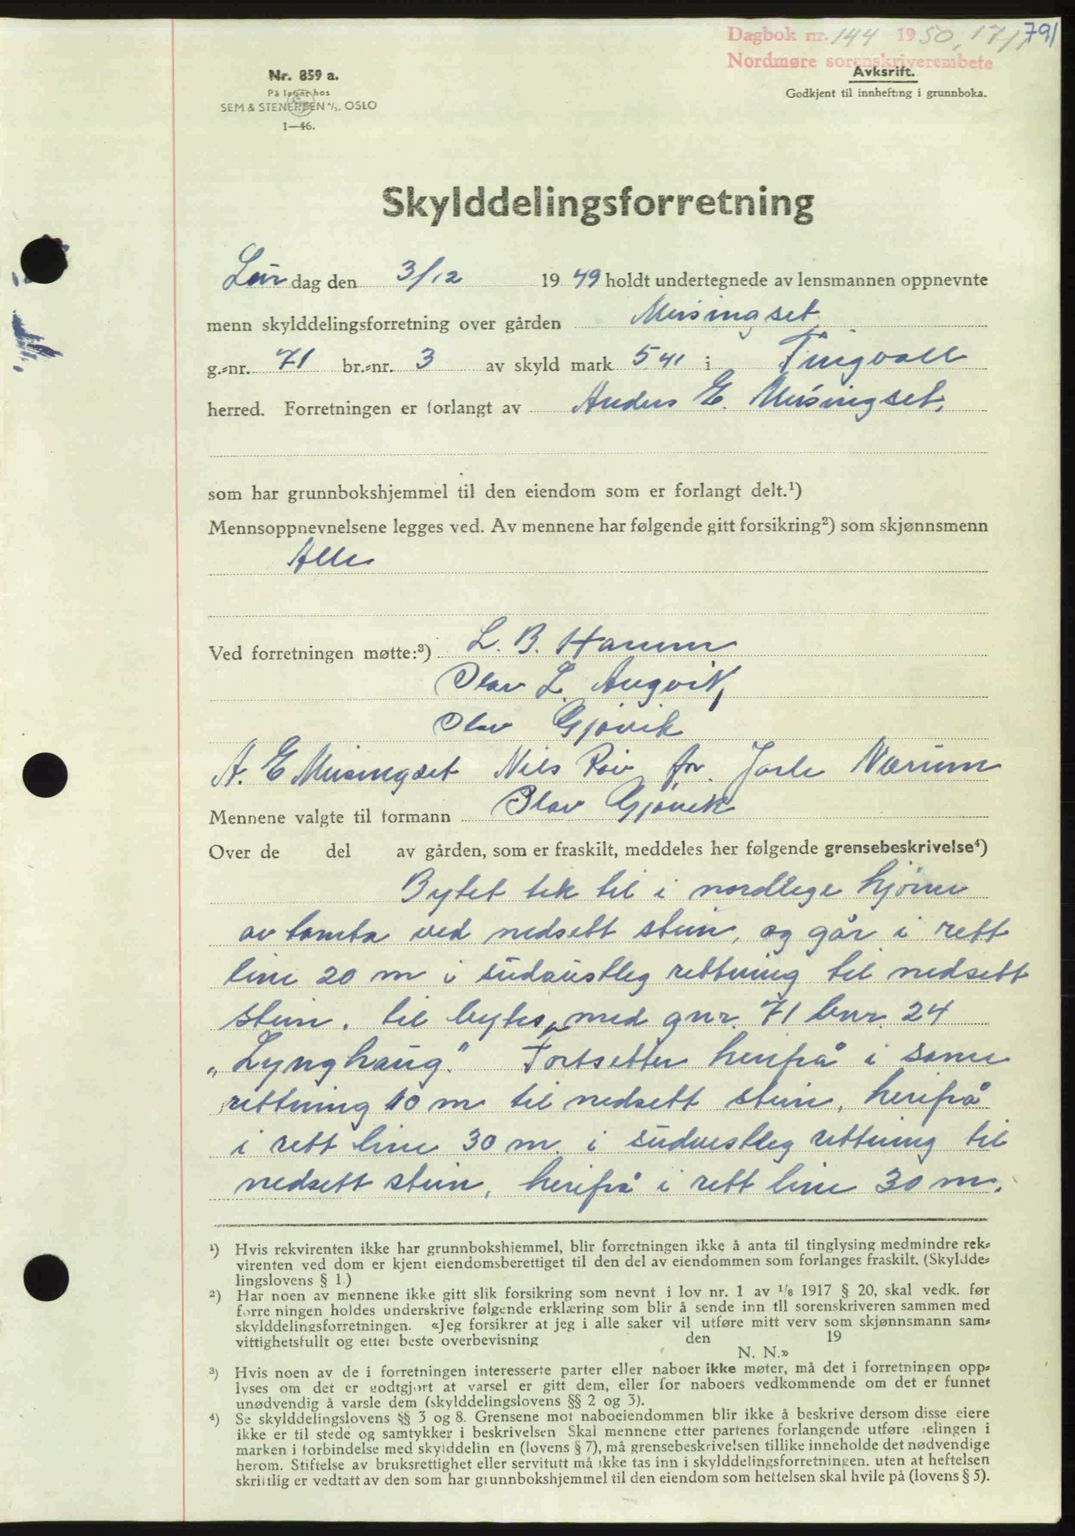 Dagbok nr. 144 1950, 17/1 791
Nordmøre sorenskriverembete
Nr. 859 a.
På lager hos
SEM & STENERSEN A/S, OSLO
1—46.
Avksrift.
Godkjent til innhefting i grunnboka.
Skylddelingsforretning
Lør dag den 3/12 1949 holdt undertegnede av lensmannen oppnevnte
menn skylddelingsforretning over gården Meisingset
g.-nr. 71 br.-nr. 3 av skyld mark 5,41 i Tingvoll
herred. Forretningen er forlangt av Anders E. Meisingset,
som har grunnbokshjemmel til den eiendom som er forlangt delt.¹)
Mennsoppnevnelsene legges ved. Av mennene har følgende gitt forsikring²) som skjønnsmenn
Alle
Ved forretningen møtte:³) L. B. Hamm
Olav L. Angvik,
Olav Gjøvik
A. E Meisingset Nils Roiv for Jarle Nærum
Mennene valgte til formann Olav Gjøvik
Over de del av gården, som er fraskilt, meddeles her følgende grensebeskrivelse⁴)
Bytet tek til i nordlege hjørne
av tomta ved nedsett stein, og går i rett
line 20 m i südaustleg rettning til nedsett
stein, til bytes med gnr. 71 bnr. 24
„Lynghaug." Fortsetter herifrå i same
rettning 10 m til nedsett stein, herifrå
i rett line 30 m. i südvestleg rettning til
nedsett stein, herifrå i rett line 30 m.
¹) Hvis rekvirenten ikke har grunnbokshjemmel, blir forretningen ikke å anta til tinglysing medmindre rek-
virenten ved dom er kjent eiendomsberettiget til den del av eiendommen som forlanges fraskilt. (Skyldde-
lingslovens § 1.)
²) Har noen av mennene ikke gitt slik forsikring som nevnt i lov nr. 1 av 1/6 1917 § 20, skal vedk. før
forretningen holdes underskrive følgende erklæring som blir å sende inn til sorenskriveren sammen med
skylddelingsforretningen. «Jeg forsikrer at jeg i alle saker vil utføre mitt verv som skjønnsmann sam-
vittighetsfullt og etter beste overbevisning den 19
N. N.»
³) Hvis noen av de i forretningen interesserte parter eller naboer ikke møter, må det i forretningen opp-
lyses om det er godtgjort at varsel er gitt dem, eller for naboers vedkommende om det er funnet
unødvendig å varsle dem (skylddelingslovens §§ 2 og 3).
⁴) Se skylddelingslovens §§ 3 og 8. Grensene mot naboeiendommen blir ikke å beskrive dersom disse eiere
ikke er til stede og samtykker i beskrivelsen Skal mennene etter partenes forlangende utføre delingen i
marken i forbindelse med skylddelin en (lovens § 7), må grensebeskrivelsen tillike inneholde det nødvendige
herom. Stiftelse av bruksrettighet eller servitutt må ikke tas inn i skylddelingsforretningen, uten at heftelsen
skriftlig er vedtatt av den som har grunnbokshjemmel til den eiendom som heftelsen skal hvile på (lovens § 5).